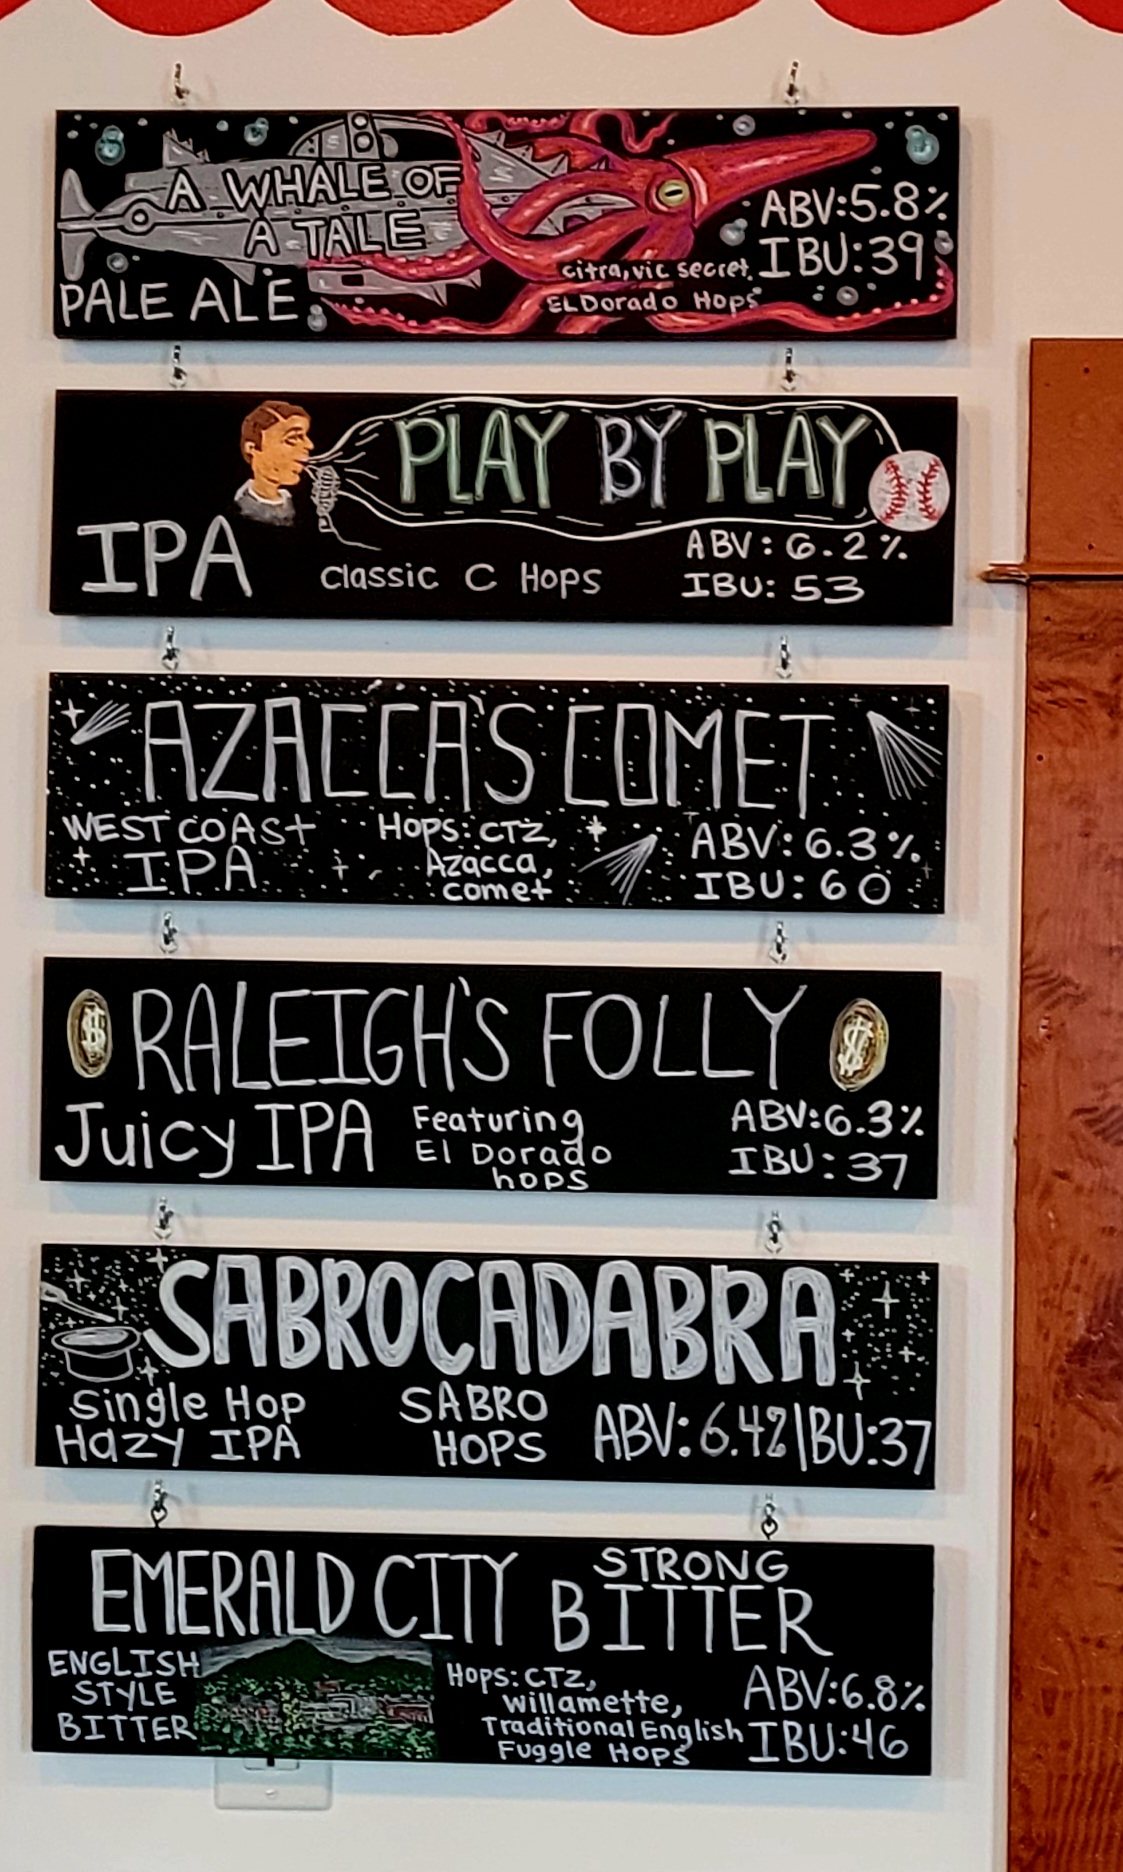 A WHALE OF
A TALE
PALE ALE
citra, vic secret,
EL Dorado Hops
ABV:5.8%
IBU:39
PLAY BY PLAY
IPA
Classic C Hops
ABV: 6.2%
IBU: 53
AZACCA'S COMET
WEST COAST
IPA
Hops: CTZ,
Azacca,
comet
ABV: 6.3%
IBU: 60
RALEIGH'S FOLLY
Juicy IPA
Featuring
El Dorado
hops
ABV:6.3%
IBU: 37
SABROCADABRA
Single Hop
Hazy IPA
SABRO
HOPS
ABV: 6.42 IBU:37
EMERALD CITY STRONG
BITTER
ENGLISH
STYLE
BITTER
Hops: CTZ,
Willamette,
Traditional English
Fuggle Hops
ABV:6.8%
IBU:46